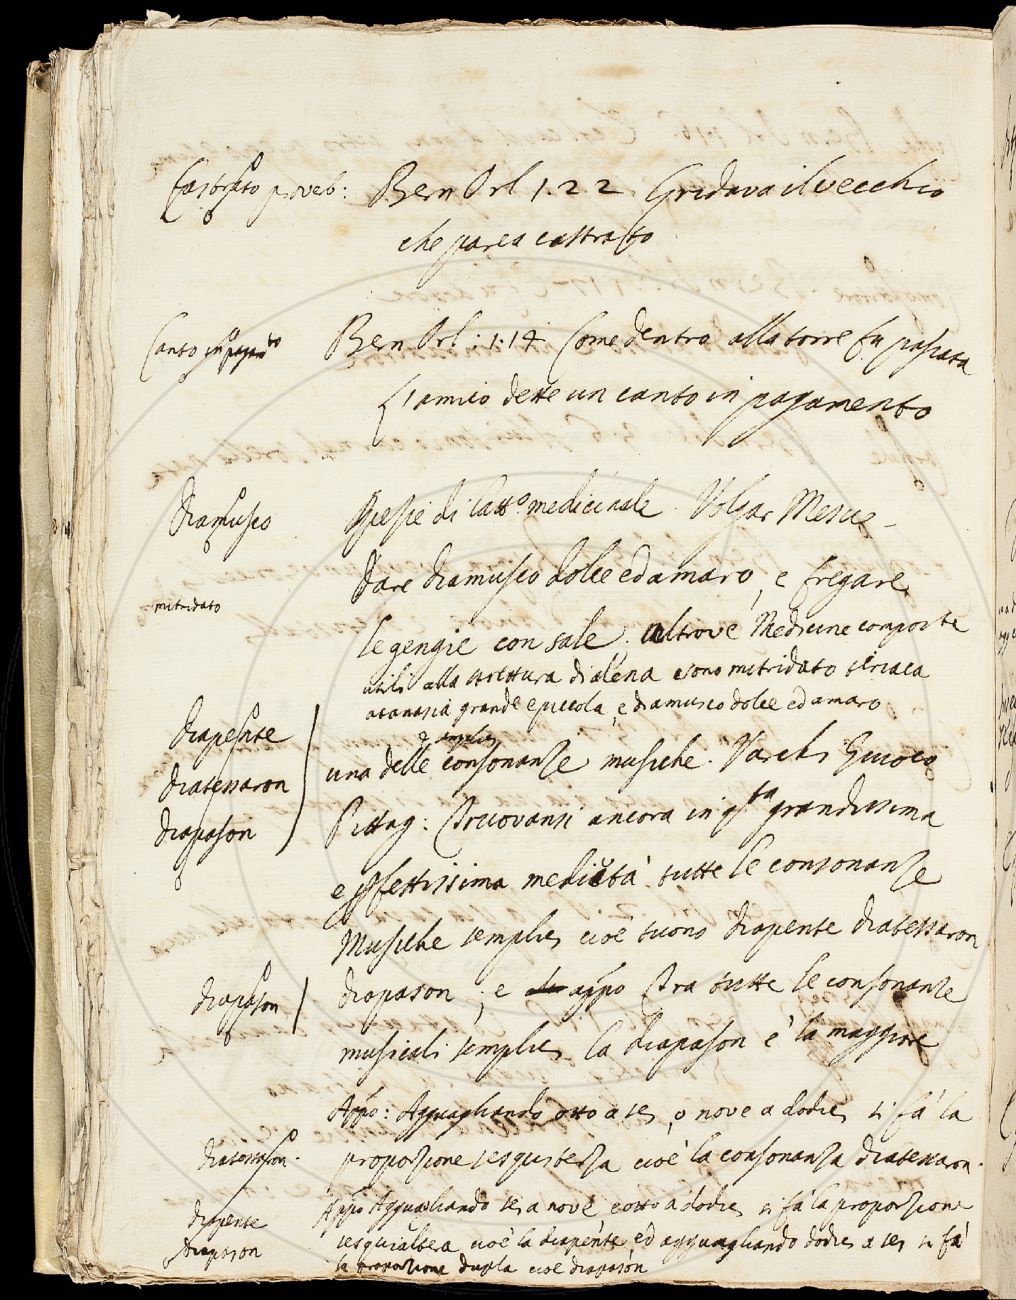 Castrato proverb: Bern Orl 1.22 Gridava il vecchio
che parea castrato
Canto in pagamto Bern Orl: 1.14 Come dentro alla torre fu passata
L'amico dette un canto in pagamento
Diamusco Spezie di latto medicinale. Volgar Mesue
Dare diamusco dolce ed amaro, e fregare
mitridato
le gengie con sale; altrove Medicine composte
utili alla strettura di alena sono mitridato teriaca
atanasia grande e piccola, e diamusco dolce ed amaro
semplici
diapente
diatessaron
diapason
una delle consonanze musiche. Varchi Giuoco
Pittag: Truovansi ancora in qta grandissima
e pfettissima medietà tutte le consonanze
Musiche semplici cioè tuono diapente diatessaron
diapason diapason; e appo Tra tutte le consonanze
musicali semplici la diapason è la maggiore
Appo: Agguagliando otto a sei, o nove a dodici si fa la
diatessaron. proporzione sesquiterza cioè la consonanza diatessaron.
diapente Appo Agguagliando sei a nove e otto a dodici si fa la proporzione
diapason sesquialtera cioè la diapente ed agguagliando dodici a sei si fa
la proporzione dupla cioè diapason